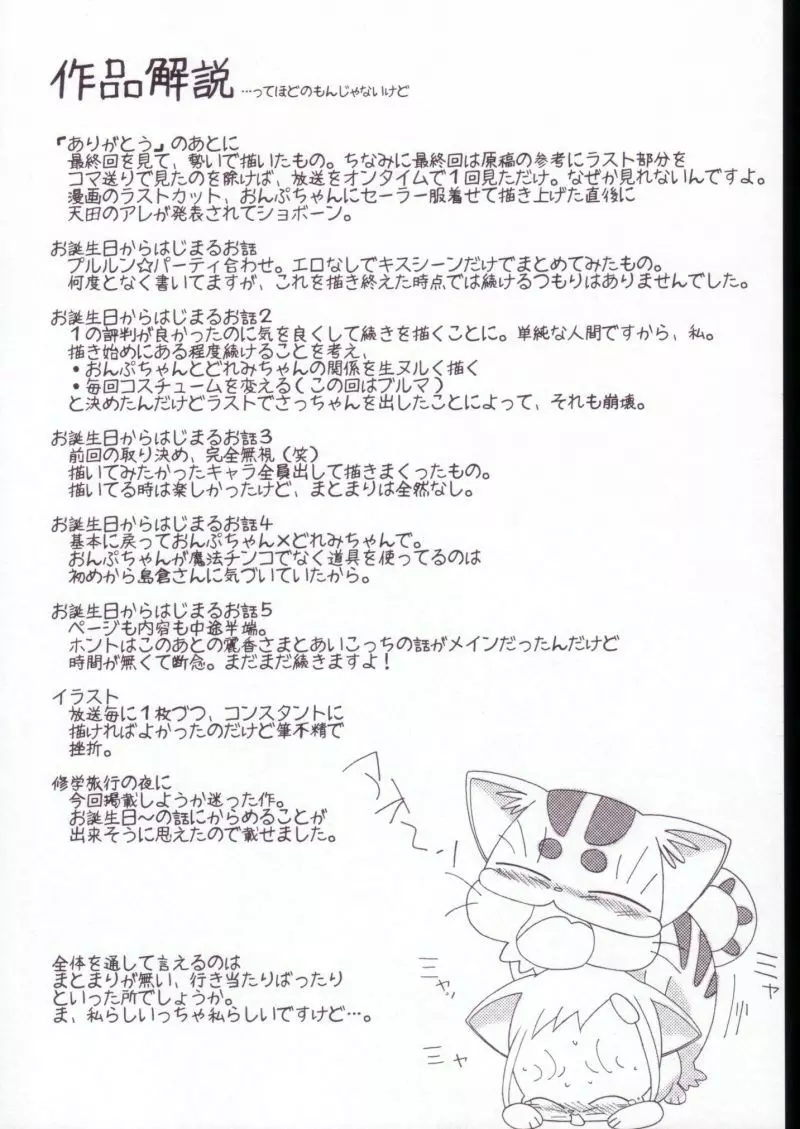 作品解説 …ってほどのもんじゃないけど
『ありがとう』のあとに
最終回を見て、勢いで描いたもの。ちなみに最終回は原稿の参考にラスト部分を
コマ送りで見たのを除けば、放送をオンタイムで1回見ただけ。なぜか見れないんですよ。
漫画のラストカット、おんぷちゃんにセーラー服着せて描き上げた直後に
天田のアレが発表されてショボーン。
お誕生日からはじまるお話
プルルン☆パーティ合わせ。エロなしでキスシーンだけでまとめてみたもの。
何度となく書いてますが、これを描き終えた時点では続けるつもりはありませんでした。
お誕生日からはじまるお話2
1の評判が良かったのに気を良くして続きを描くことに。単純な人間ですから、私。
描き始めにある程度続けることを考え、
•おんぷちゃんとどれみちゃんの関係を生ヌルく描く
•毎回コスチュームを変える(この回はブルマ)
と決めたんだけどラストでさっちゃんを出したことによって、それも崩壊。
お誕生日からはじまるお話3
前回の取り決め、完全無視(笑)
描いてみたかったキャラ全員出して描きまくったもの。
描いてる時は楽しかったけど、まとまりは全然なし。
お誕生日からはじまるお話4
基本に戻っておんぷちゃん×どれみちゃんで。
おんぷちゃんが魔法チンコでなく道具を使ってるのは
初めから島倉さんに気づいていたから。
お誕生日からはじまるお話5
ページも内容も中途半端。
ホントはこのあとの麗香さまとあいこっちの話がメインだったんだけど
時間が無くて断念。まだまだ続きますよ!
イラスト
放送毎に1枚づつ、コンスタントに
描ければよかったのだけど筆不精で
挫折。
修学旅行の夜に
今回掲載しようか迷った作。
お誕生日〜の話にからめることが
出来そうに思えたので載せました。
全体を通して言えるのは
まとまりが無い、行き当たりばったり
といった所でしょうか。
ま、私らしいっちゃ私らしいですけど…。
ミャッ
ミャ
ミャ